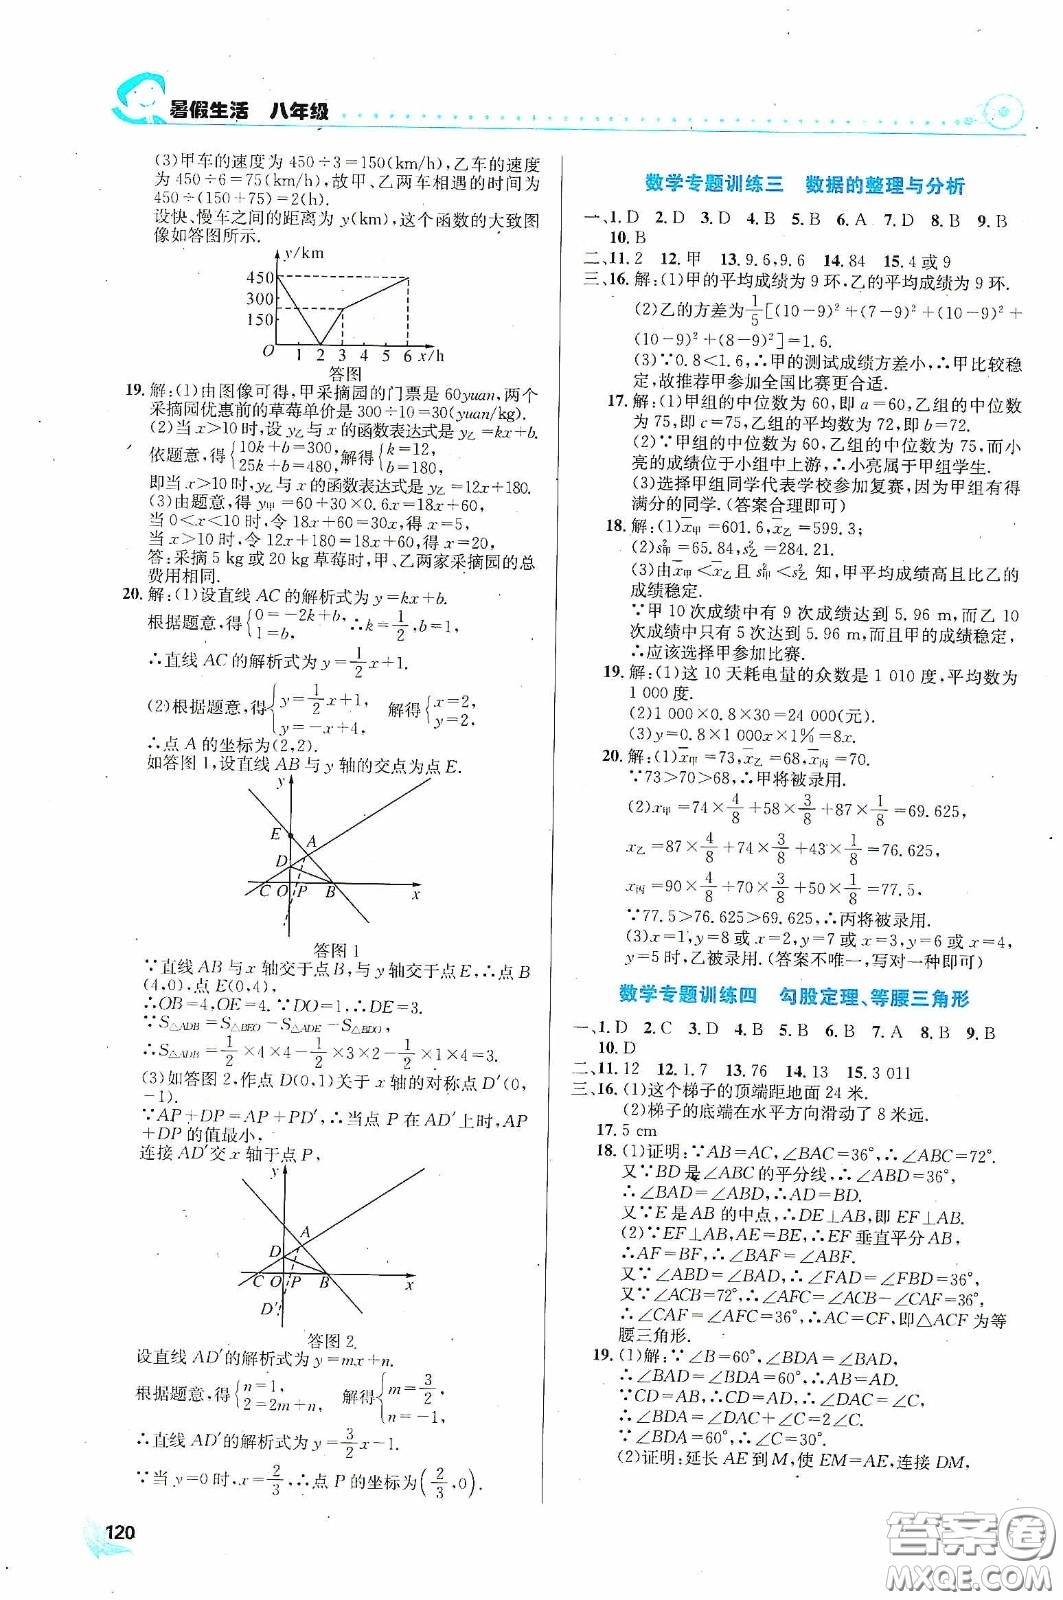 暑假生活　八年级
(3)甲车的速度为450÷3=150(km/h),乙车的速度
为450÷6=75(km/h),故甲、乙两车相遇的时间为
450÷(150+75)=2(h).
设快、慢车之间的距离为y(km),这个函数的大致图
像如答图所示.
y/km
450
300
150
O 1 2 3 4 5 6 x/h
答图
19. 解:(1)由图像可得,甲采摘园的门票是60yuan,两个
采摘园优惠前的草莓单价是300÷10=30(yuan/kg).
(2)当x>10时,设y乙与x的函数表达式是y乙=kx+b.
依题意,得{10k+b=300, 25k+b=480, 解得{k=12, b=180,
即当x>10时,y乙与x的函数表达式是y乙=12x+180.
(3)由题意,得y甲=60+30×0.6x=18x+60,
当0<x<10时,令18x+60=30x,得x=5,
当x>10时,令12x+180=18x+60,得x=20,
答:采摘5 kg或20 kg草莓时,甲、乙两家采摘园的总
费用相同.
20. 解:(1)设直线AC的解析式为y=kx+b.
根据题意,得{0=-2k+b, 1=b, ∴k=1/2,b=1,
∴直线AC的解析式为y=1/2x+1.
(2)根据题意,得{y=1/2x+1, y=-x+4, 解得{x=2, y=2.
∴点A的坐标为(2,2).
如答图1,设直线AB与y轴的交点为点E.
y
E
A
D
C O P B x
答图1
∵直线AB与x轴交于点B,与y轴交于点E,∴点B
(4,0),点E(0,4),
∴OB=4,OE=4.∵DO=1,∴DE=3.
∵S△ADB=S△BEO-S△ADE-S△BDO,
∴S△ADB=1/2×4×4-1/2×3×2-1/2×4×1=3.
(3)如答图2,作点D(0,1)关于x轴的对称点D′(0,
-1).
∵AP+DP=AP+PD′,∴当点P在AD′上时,AP
+DP的值最小,
连接AD′交x轴于点P,
y
A
D
C O P B x
D′
答图2
设直线AD′的解析式为y=mx+n.
根据题意,得{n=-1, 2=2m+n, 解得{m=3/2, n=-1,
∴直线AD′的解析式为y=3/2x-1.
∵当y=0时,x=2/3,∴点P的坐标为(2/3,0).
120
数学专题训练三　数据的整理与分析
一、1. D 2. D 3. D 4. B 5. B 6. A 7. D 8. B 9. B
10. B
二、11. 2 12. 甲 13. 9.6,9.6 14. 84 15. 4或9
三、16. 解:(1)甲的平均成绩为9环,乙的平均成绩为9环.
(2)乙的方差为1/5[(10-9)²+(7-9)²+(10-9)²+
(10-9)²+(8-9)²]=1.6.
(3)∵0.8<1.6,∴甲的测试成绩方差小,∴甲比较稳
定,故推荐甲参加全国比赛更合适.
17. 解:(1)甲组的中位数为60,即a=60,乙组的中位数
为75,即c=75,乙组的平均数为72,即b=72.
(2)∵甲组的中位数为60,乙组的中位数为75,而小
亮的成绩位于小组中上游,∴小亮属于甲组学生.
(3)选择甲组同学代表学校参加复赛,因为甲组有得
满分的同学.(答案合理即可)
18. 解:(1)x̄甲=601.6,x̄乙=599.3;
(2)s²甲=65.84,s²乙=284.21.
(3)由x̄甲<x̄乙且s²甲<s²乙知,甲平均成绩高且比乙的
成绩稳定.
∵甲10次成绩中有9次成绩达到5.96 m,而乙10
次成绩中只有5次达到5.96 m,而且甲的成绩稳定,
∴应该选择甲参加比赛.
19. 解:(1)这10天耗电量的众数是1 010度,平均数为
1 000度.
(2)1 000×0.8×30=24 000(元).
(3)y=0.8×1 000x×1%=8x.
20. 解:(1)x̄甲=73,x̄乙=68,x̄丙=70.
∵73>70>68,∴甲将被录用.
(2)x甲=74×4/8+58×3/8+87×1/8=69.625,
x乙=87×4/8+74×3/8+43×1/8=76.625,
x丙=90×4/8+70×3/8+50×1/8=77.5,
∵77.5>76.625>69.625,∴丙将被录用.
(3)x=1,y=8或x=2,y=7或x=3,y=6或x=4,
y=5时,乙被录用.(答案不唯一,写对一种即可)
数学专题训练四　勾股定理、等腰三角形
一、1. D 2. C 3. D 4. B 5. B 6. B 7. A 8. B 9. B
10. D
二、11. 12 12. 1.7 13. 76 14. 13 15. 3 011
三、16. (1)这个梯子的顶端距地面24米.
(2)梯子的底端在水平方向滑动了8米远.
17. 5 cm
18. (1)证明:∵AB=AC,∠BAC=36°,∴∠ABC=72°.
又∵BD是∠ABC的平分线,∴∠ABD=36°,
∴∠BAD=∠ABD,∴AD=BD.
又∵E是AB的中点,∴DE⊥AB,即EF⊥AB.
(2)∵EF⊥AB,AE=BE,∴EF垂直平分AB,
∴AF=BF,∴∠BAF=∠ABF.
又∵∠ABD=∠BAD,∴∠FAD=∠FBD=36°,
又∵∠ACB=72°,∴∠AFC=∠ACB-∠CAF=36°,
∴∠CAF=∠AFC=36°,∴AC=CF,即△ACF为等
腰三角形.
19. (1)解:∵∠B=60°,∠BDA=∠BAD,
∴∠BAD=∠BDA=60°,∴AB=AD.
∵CD=AB,∴CD=AD,∴∠DAC=∠C,
∴∠BDA=∠DAC+∠C=2∠C.
∵∠BDA=60°,∴∠C=30°.
(2)证明:延长AE到M,使EM=AE,连接DM,
答案圈
MXQE.COM